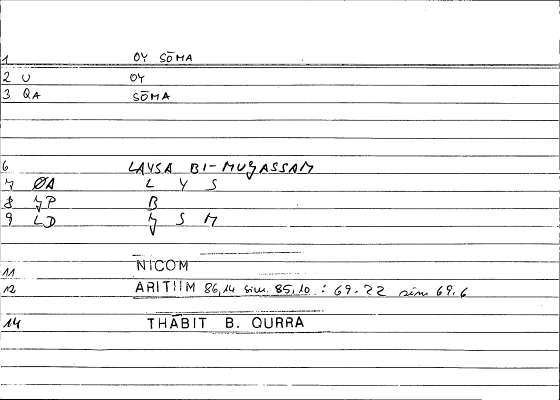 1 OY SŌMA
2 U OY
3 QA SŌMA
6 LAYSA BI-MUǦASSAM
7 ØA L Y S
8 ǦP B
9 LD Ǧ S M
11 NICOM
12 ARITIIM 86,14 sim. 85,10 : 69.22 sim 69.6
14 THĀBIT B. QURRA